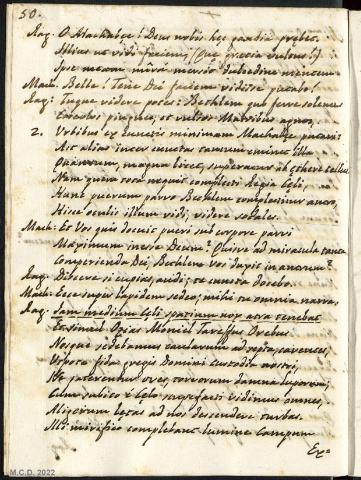 50.
Rag: O Machabee! Deus nobis hec gaudia prębet.
Illius ut vidi faciem, (Que gratia vultus!)
Ipse meam mirâ mersit dulcedine mentem.
Mach: Belle! Tene Dei faciem vidisse putabo?
Rag: Tuque videre potes: Bethlem quo ferre solemus
pinguesque, et vultor Matribus agnos,
2. Urbibus ex cunctis minimam Machabęe putavi:
Ast alias inter cunctas tamen eminet illa
Quantum, magna licet, superatur ab ęthere tellus.
Nam quem non nequit complecti Regia Cęli,
Hunc puerum parvo Bethlem complectitur antro,
Hisce oculis illum vidi, videre sodales.
Mach: Et Vos quis docuit pueri sub corpore parvi
Maximum inesse Deum? Quisve ad miracula tanta
Comperienda Dei, Bethlem Vos dupit in antrum?
Rag: Discere si cupias, audi; te cuncta docebo.
Mach: Ecce super lapidem sedeo, mihi tu omnia narra,
Rag: Jam medium Cęli spatium nox atra tenebat
Et simul Ozias Moniel Tareffas Orebus
Nosque sedebamus caularum ad septa, caventes,
Utpote fida gregis Domini custodia nostri,
Ne paterentur oves, torvorum damna luporum;
Cum subito e Cęlo stupefacti vidimus omnes,
Aligerum lętas ad nos descendere turbas.
Ut mirifico complebant lumine Campum
Ex=
M.C.D. 2022